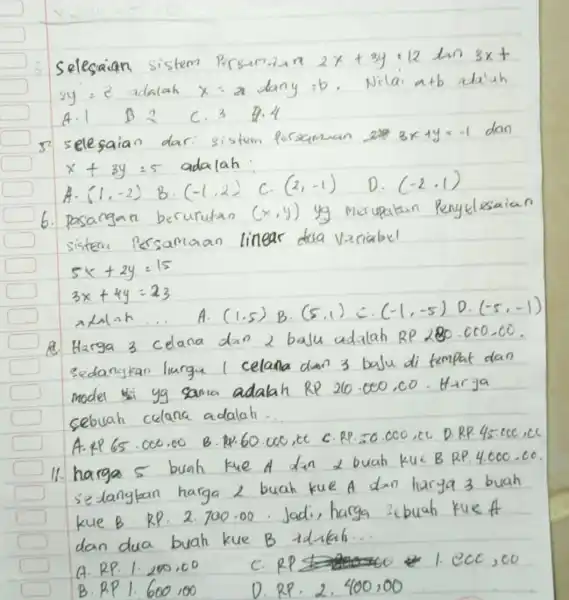 Selesaian sistem Persamaan 2x + 3y = 12 dan 3x +
2y = 8 adalah x = a dan y = b. Nilai a+b adalah
A. 1 B. 2 C. 3 D. 4
5. selesaian dari sistem Persamaan 3x + y = -1 dan
x + 3y = 5 adalah :
A. (1, -2) B. (-1, 2) C. (2, -1) D. (-2, 1)
6. Pasangan berurutan (x, y) yg Merupakan Penyelesaian
sistem Persamaan linear dua Variabel
5x + 2y = 15
3x + 4y = 23
adalah ... A. (1.5) B. (5,1) C. (-1, -5) D. (-5, -1)
8. Harga 3 celana dan 2 baju adalah RP 280.000,00.
sedangkan harga 1 celana dan 3 baju di tempat dan
model yg sama adalah RP 210.000,00. Harga
sebuah celana adalah ..
A. RP 65.000,00 B. RP. 60.000,00 C. RP. 50.000,00 D. RP. 45.000,00
11. harga 5 buah kue A dan 2 buah kue B RP. 4.000.00.
sedangkan harga 2 buah kue A dan harga 3 buah
kue B RP. 2.700.00. Jadi, harga sebuah kue A
dan dua buah kue B adalah...
A. RP. 1.200,00 C. RP 1.800,00
B. RP 1.600,00 D. RP. 2.400,00